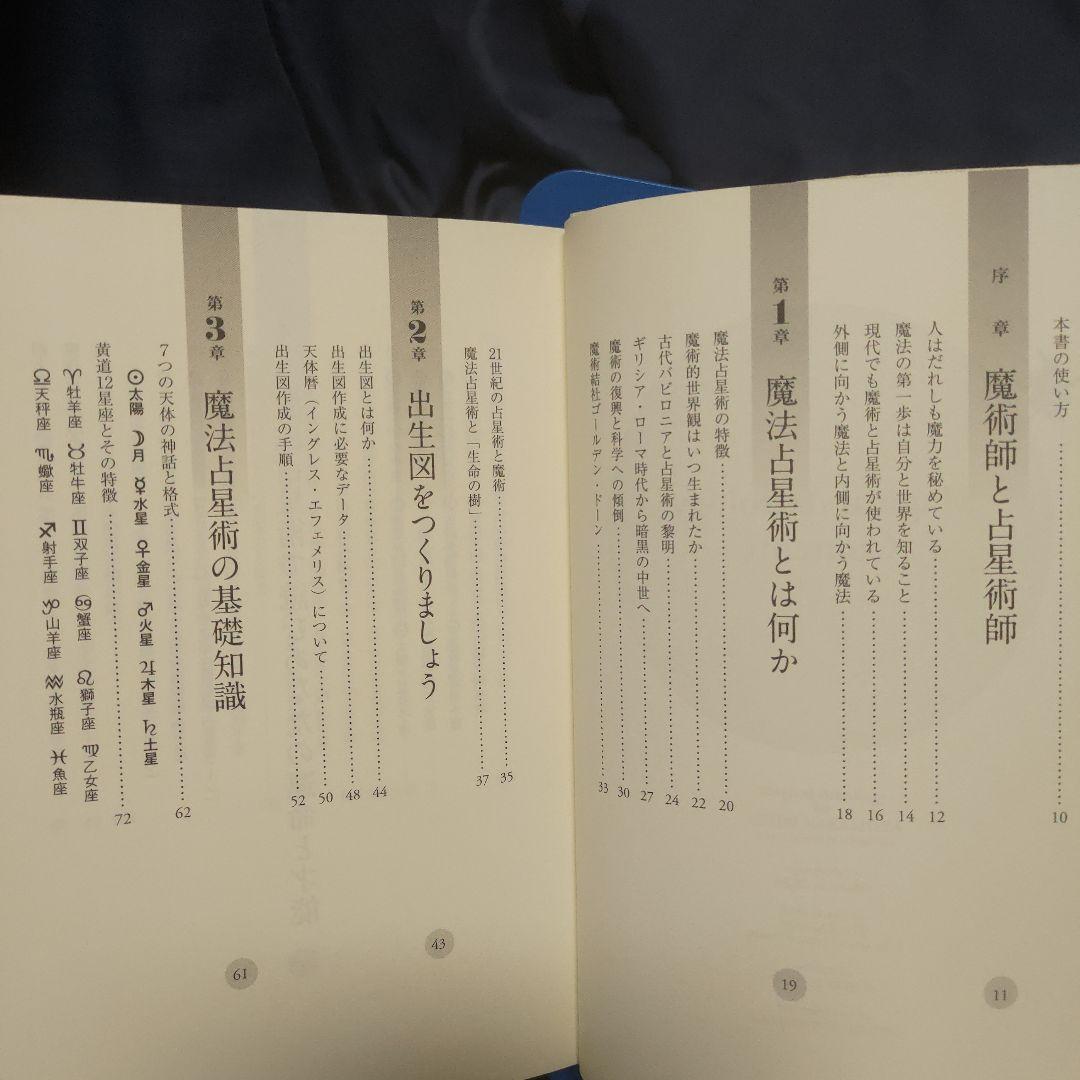 本書の使い方 10
序章 魔術師と占星術師 11
人はだれしも魔力を秘めている 12
魔法の第一歩は自分と世界を知ること 14
現代でも魔術と占星術が使われている 16
外側に向かう魔法と内側に向かう魔法 18
第1章 魔法占星術とは何か 19
魔法占星術の特徴 20
魔術的世界観はいつ生まれたか 22
古代バビロニアと占星術の黎明 24
ギリシア・ローマ時代から暗黒の中世へ 27
魔術の復興と科学への傾倒 30
魔術結社ゴールデン・ドーン 33
21世紀の占星術と魔術 35
魔法占星術と「生命の樹」 37
第2章 出生図をつくりましょう 43
出生図とは何か 44
出生図作成に必要なデータ 48
天体暦（イングレス・エフェメリス）について 50
出生図作成の手順 52
第3章 魔法占星術の基礎知識 61
7つの天体の神話と格式 62
☉太陽 ☽月 ☿水星 ♀金星 ♂火星 ♃木星 ♄土星
黄道12星座とその特徴 72
♈牡羊座 ♉牡牛座 ♊双子座 ♋蟹座 ♌獅子座 ♍乙女座
♎天秤座 ♏蠍座 ♐射手座 ♑山羊座 ♒水瓶座 ♓魚座